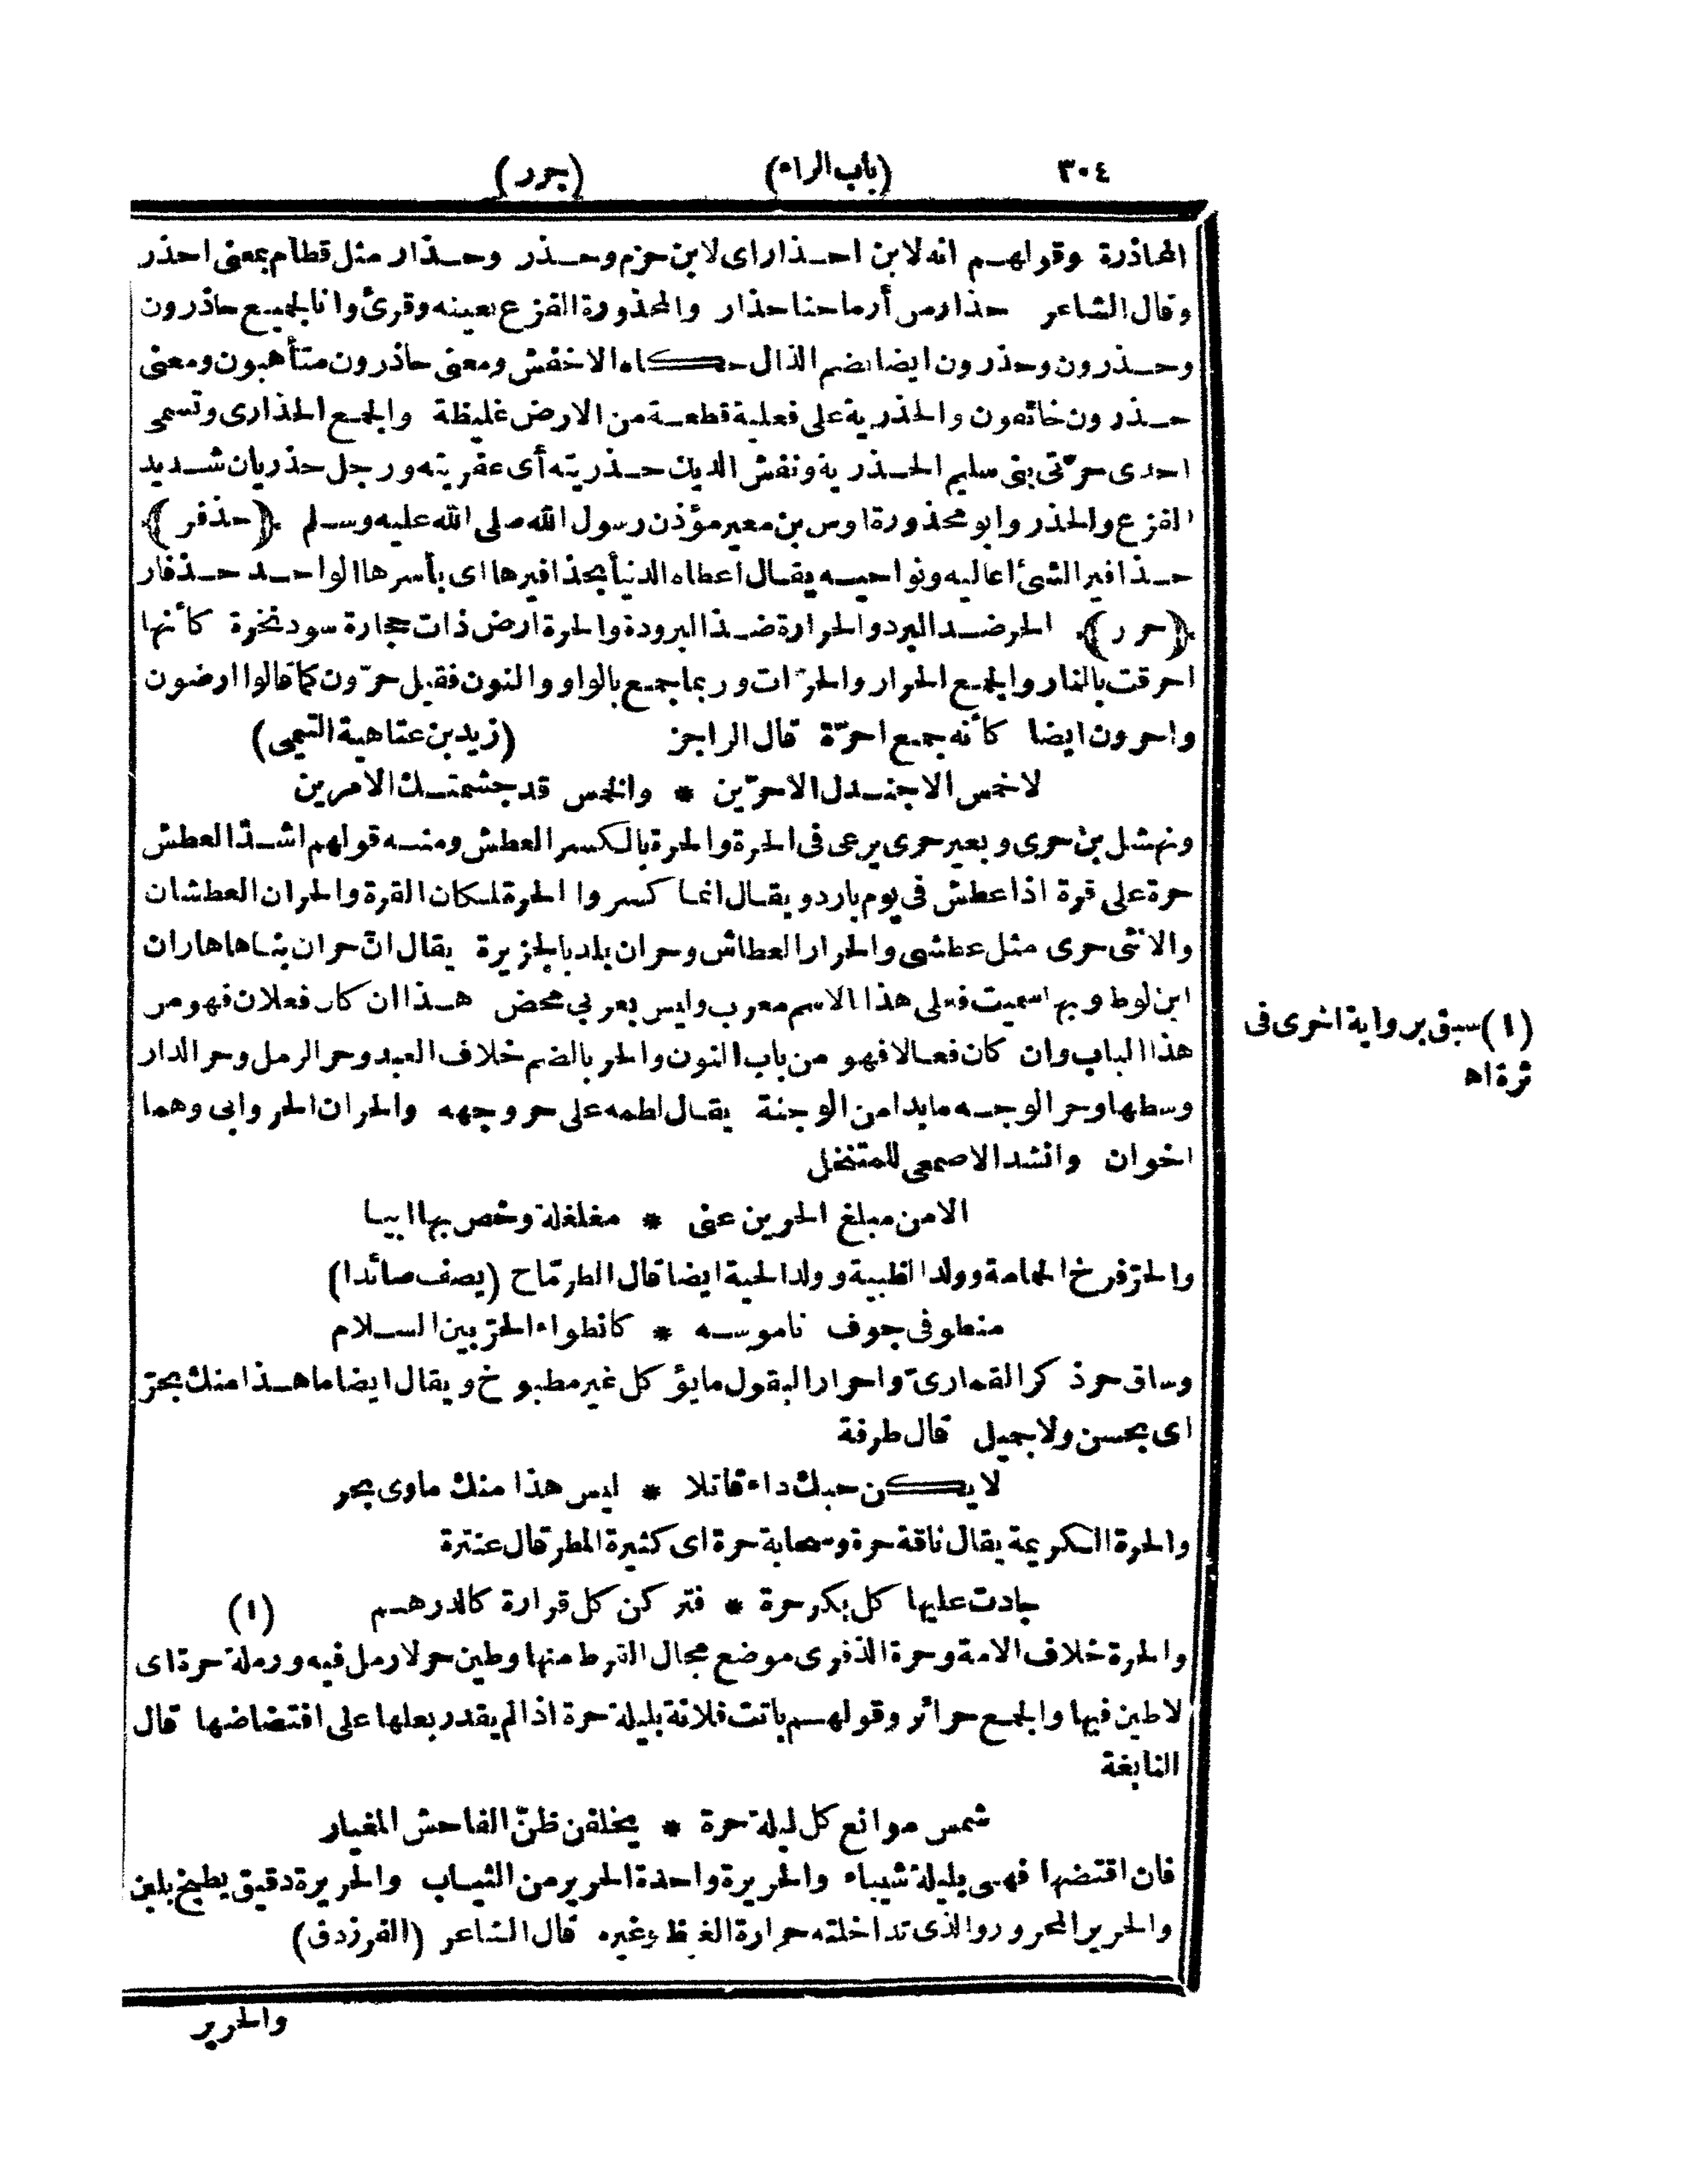 ٣٠٤ (باب الراء) (جرر)
المحاذرة وقولهم انه لابن احذار اى لابن حزم وحذر وحذار مثل قطام بمعنى احذر
وقال الشاعر حذار من أرماحنا حذار والمحذورة الفزع بعينه وقرئ وانا لجميع حاذرون
وحذرون وحذرون ايضا بضم الذال حكاه الاخفش ومعنى حاذرون متأهبون ومعنى
حذرون خائفون والحذرية على فعلية قطعة من الارض غليظة والجمع الحذارى وتسمى
احدى حرّتى بنى سليم الحذرية ونفش الديك حذريته أى عفريته ورجل حذريان شديد
الفزع والحذر وابو محذورة اوس بن معير مؤذن رسول الله صلى الله عليه وسلم ﴿حذفر﴾
حذافير الشئ اعاليه ونواحيه يقال اعطاه الدنيا بحذافيرها اى بأسرها الواحد حذفار
﴿حرر﴾ الحر ضد البرد والحرارة ضدّ البرودة والحرة ارض ذات حجارة سود نخرة كأنها
احرقت بالنار والجمع الحرار والحرّات وربما جمع بالواو والنون فقيل حرّون كما قالوا ارضون
واحرون ايضا كأنه جمع احرّة قال الراجز (زيد بن عتاهية التميمى)
لا خمس الا جندل الاحرّين * والخمس قد جشمتك الامرين
ونهشل بن حرى وبعير حرى يرعى فى الحرة والحرة بالكسر العطش ومنه قولهم اشدّ العطش
حرة على قرة اذا عطش فى يوم بارد ويقال انما كسروا الحرة لمكان القرة والحران العطشان
والانثى حرى مثل عطشى والحرار العطاش وحران بلد بالجزيرة يقال انّ حران بناها هاران
ابن لوط وبها سميت فعلى هذا الاسم معرب وليس بعربي محض هذا ان كان فعلان فهو من
هذا الباب وان كان فعالا فهو من باب النون والحر بالضم خلاف العبد وحر الرمل وحر الدار
وسطها وحر الوجه ما بدا من الوجنة يقال لطمه على حر وجهه والحران الحر وابى وهما
اخوان وانشد الاصمعى للمتنخل
الا من مبلغ الحرين عنى * مغلغلة وخص بها ابيا
والحرّ فرخ الحمامة وولد الظبية وولد الحية ايضا قال الطرمّاح (يصف صائدا)
منطو فى جوف ناموسه * كانطواء الحرّ بين السلام
وساق حر ذكر القمارىّ واحرار البقول ما يؤكل غير مطبوخ ويقال ايضا ما هذا منك بحرّ
اى بحسن ولا جميل قال طرفة
لا يكن حبك داء قاتلا * ليس هذا منك ماوى بحر
والحرة الكريمة يقال ناقة حرة وسحابة حرة اى كثيرة المطر قال عنترة
جادت عليها كل بكر حرة * فتركن كل قرارة كالدرهم (١)
والحرة خلاف الامة وحرة الذفرى موضع مجال القرط منها وطين حر لا رمل فيه ورملة حرة اى
لا طين فيها والجمع حرائر وقولهم باتت فلانة بليلة حرة اذا لم يقدر بعلها على افتضاضها قال
النابغة
شمس موانع كل ليلة حرة * يخلفن ظنّ الفاحش المغيار
فان اقتضها فهى بليلة شيباء والحريرة واحدة الحرير من الثياب والحريرة دقيق يطبخ بلبن
والحرير المحرور والذى تداخلته حرارة الغيظ وغيره قال الشاعر (الفرزدق)
والحرير
(١) سبق برواية اخرى فى
ثرة اه